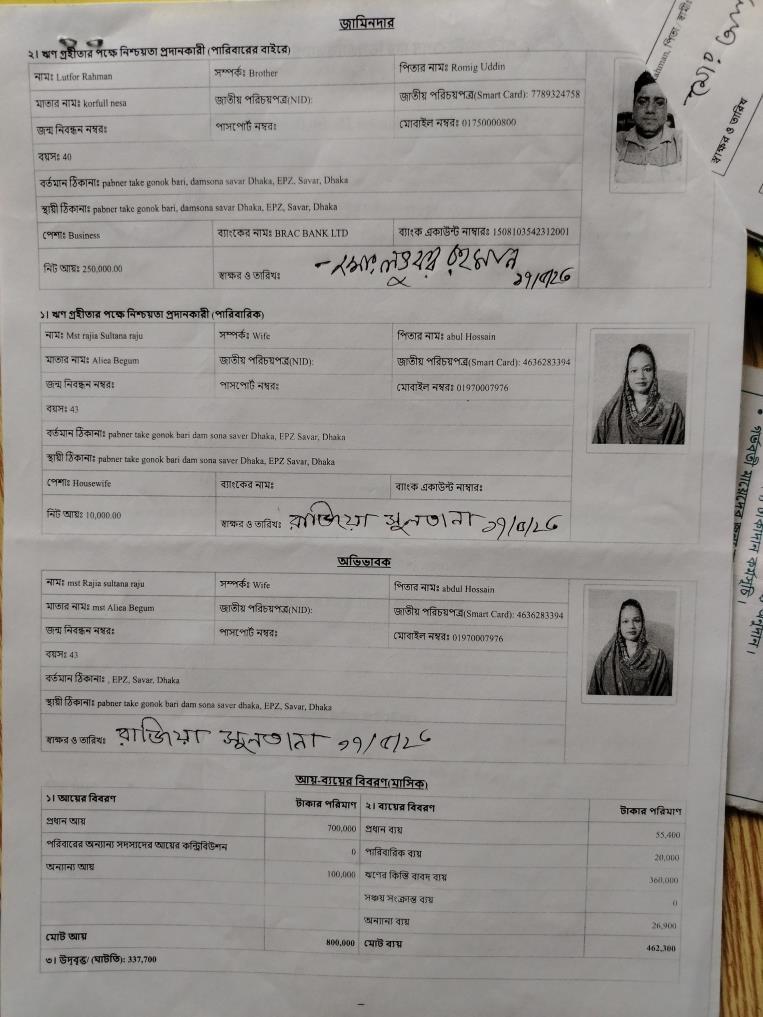 জামিনদার
২। ঋণ গ্রহীতার পক্ষে নিশ্চয়তা প্রদানকারী (পরিবারের বাইরে)
নাম: Lutfor Rahman সম্পর্ক: Brother পিতার নাম: Romig Uddin
মাতার নাম: korfull nesa জাতীয় পরিচয়পত্র(NID): জাতীয় পরিচয়পত্র(Smart Card): 7789324758
জন্ম নিবন্ধন নম্বর: পাসপোর্ট নম্বর: মোবাইল নম্বর: 01750000800
বয়স: 40
বর্তমান ঠিকানা: pabner take gonok bari, damsona savar Dhaka, EPZ, Savar, Dhaka
স্থায়ী ঠিকানা: pabner take gonok bari, damsona savar Dhaka, EPZ, Savar, Dhaka
পেশা: Business ব্যাংকের নাম: BRAC BANK LTD ব্যাংক একাউন্ট নাম্বার: 1508103542312001
নিট আয়: 250,000.00 স্বাক্ষর ও তারিখ: রহমান
১। ঋণ গ্রহীতার পক্ষে নিশ্চয়তা প্রদানকারী (পারিবারিক)
নাম: Mst rajia Sultana raju সম্পর্ক: Wife পিতার নাম: abul Hossain
মাতার নাম: Aliea Begum জাতীয় পরিচয়পত্র(NID): জাতীয় পরিচয়পত্র(Smart Card): 4636283394
জন্ম নিবন্ধন নম্বর: পাসপোর্ট নম্বর: মোবাইল নম্বর: 01970007976
বয়স: 43
বর্তমান ঠিকানা: pabner take gonok bari dam sona saver Dhaka, EPZ Savar, Dhaka
স্থায়ী ঠিকানা: pabner take gonok bari dam sona saver Dhaka, EPZ Savar, Dhaka
পেশা: Housewife ব্যাংকের নাম: ব্যাংক একাউন্ট নাম্বার:
নিট আয়: 10,000.00 স্বাক্ষর ও তারিখ: রাজিয়া সুলতানা
অভিভাবক
নাম: mst Rajia sultana raju সম্পর্ক: Wife পিতার নাম: abdul Hossain
মাতার নাম: mst Aliea Begum জাতীয় পরিচয়পত্র(NID): জাতীয় পরিচয়পত্র(Smart Card): 4636283394
জন্ম নিবন্ধন নম্বর: পাসপোর্ট নম্বর: মোবাইল নম্বর: 01970007976
বয়স: 43
বর্তমান ঠিকানা: , EPZ, Savar, Dhaka
স্থায়ী ঠিকানা: pabner take gonok bari dam sona saver dhaka, EPZ, Savar, Dhaka
স্বাক্ষর ও তারিখ: রাজিয়া সুলতানা
আয়-ব্যয়ের বিবরণ(মাসিক)
১। আয়ের বিবরণ টাকার পরিমাণ ২। ব্যয়ের বিবরণ টাকার পরিমাণ
প্রধান আয় 700,000 প্রধান ব্যয় 55,400
পরিবারের অন্যান্য সদস্যদের আয়ের কন্ট্রিবিউশন 0 পারিবারিক ব্যয় 20,000
অন্যান্য আয় 100,000 ঋণের কিস্তি বাবদ ব্যয় 360,000
সঞ্চয় সংক্রান্ত ব্যয় 0
অন্যান্য ব্যয় 26,900
মোট আয় 800,000 মোট ব্যয় 462,300
৩। উদ্বৃত্ত/ (ঘাটতি): 337,700
স্বাক্ষর ও তারিখ